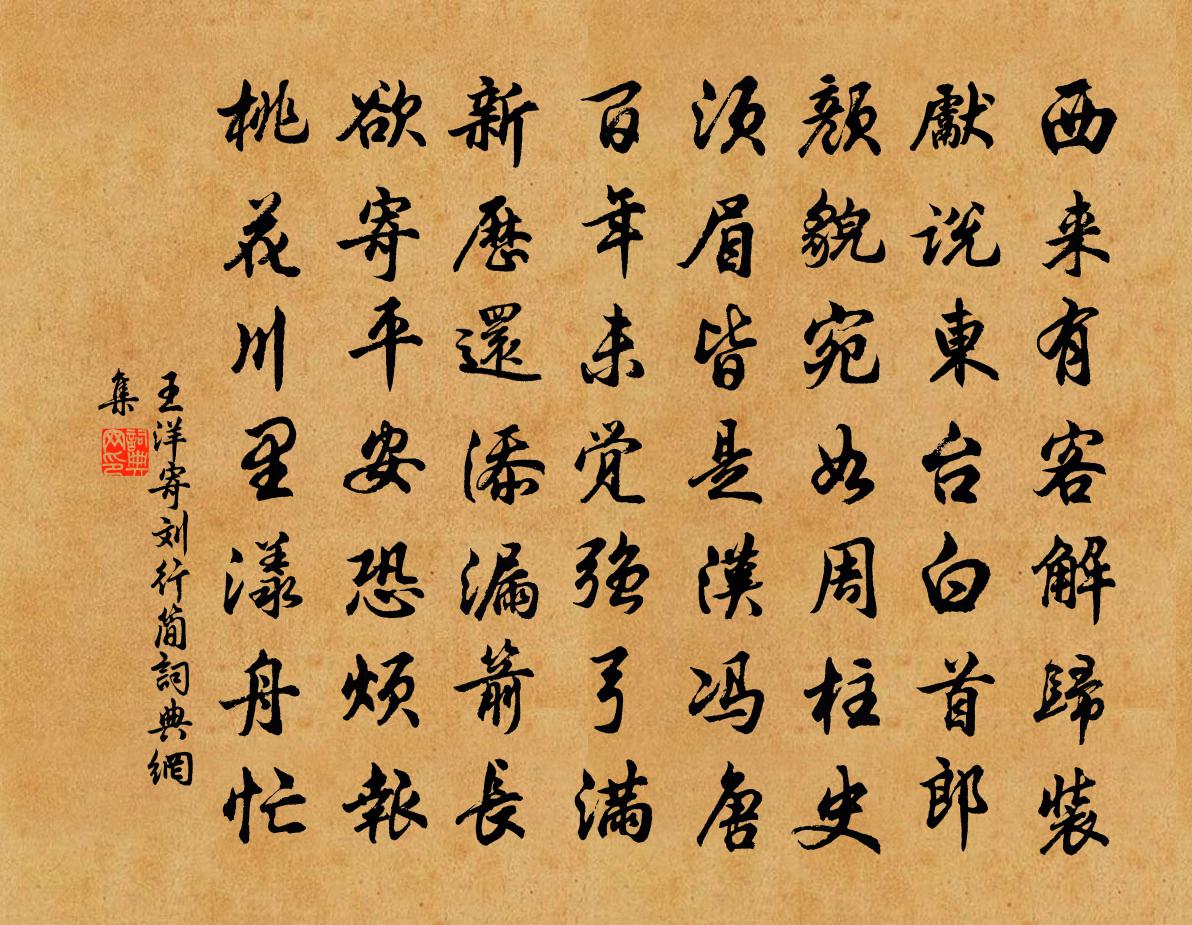 西来有客解歸裝
獻説東台白首郎
顏貌宛如周柱史
須眉皆是漢馮唐
百年未觉强弓满
新歷還添漏箭長
欲寄平安恐煩報
桃花川里漾舟忙
王洋寄刘行简詞典網
集
詞典
网印